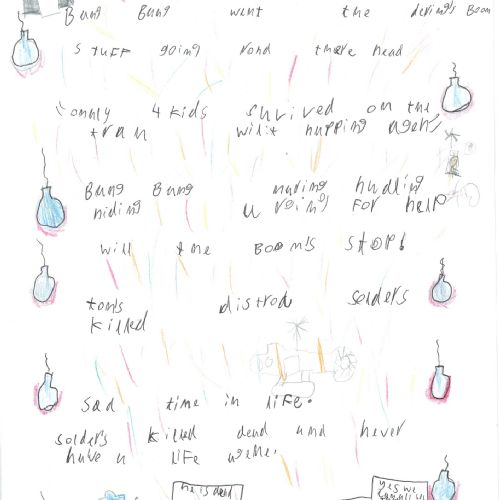 Bang Bang went the dering's Boom
STUFF going rond there head
"omnly 4 kids survived on the
tran wilit happing agen,
Bang Bang nuring hudling
hiding u roing For help
will the Boom's STOP!
tom's distrod solders
killed
sad time in life.
solders killed dead and never
have a life agene.
he is dead
yes we